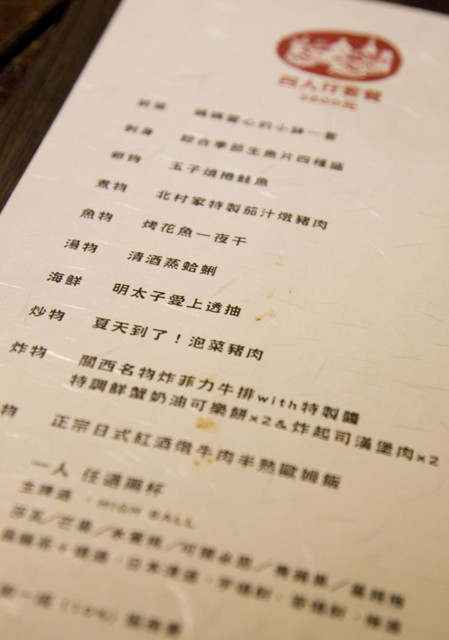 四人份套餐
3800元
前菜 媽媽愛心的小缽一套
刺身 綜合季節生魚片四種盛
卵物 玉子燒捲鮭魚
煮物 北村家特製茄汁燉豬肉
魚物 烤花魚一夜干
湯物 清酒蒸蛤蜊
海鮮 明太子愛上透抽
炒物 夏天到了！泡菜豬肉
炸物 關西名物炸菲力牛排with特製醬
特調鮮蟹奶油可樂餅x2&炸起司漢堡肉x2
物 正宗日式紅酒燉牛肉半熟歐姆飯
一人 任選兩杯
生啤酒・HIGH BALL